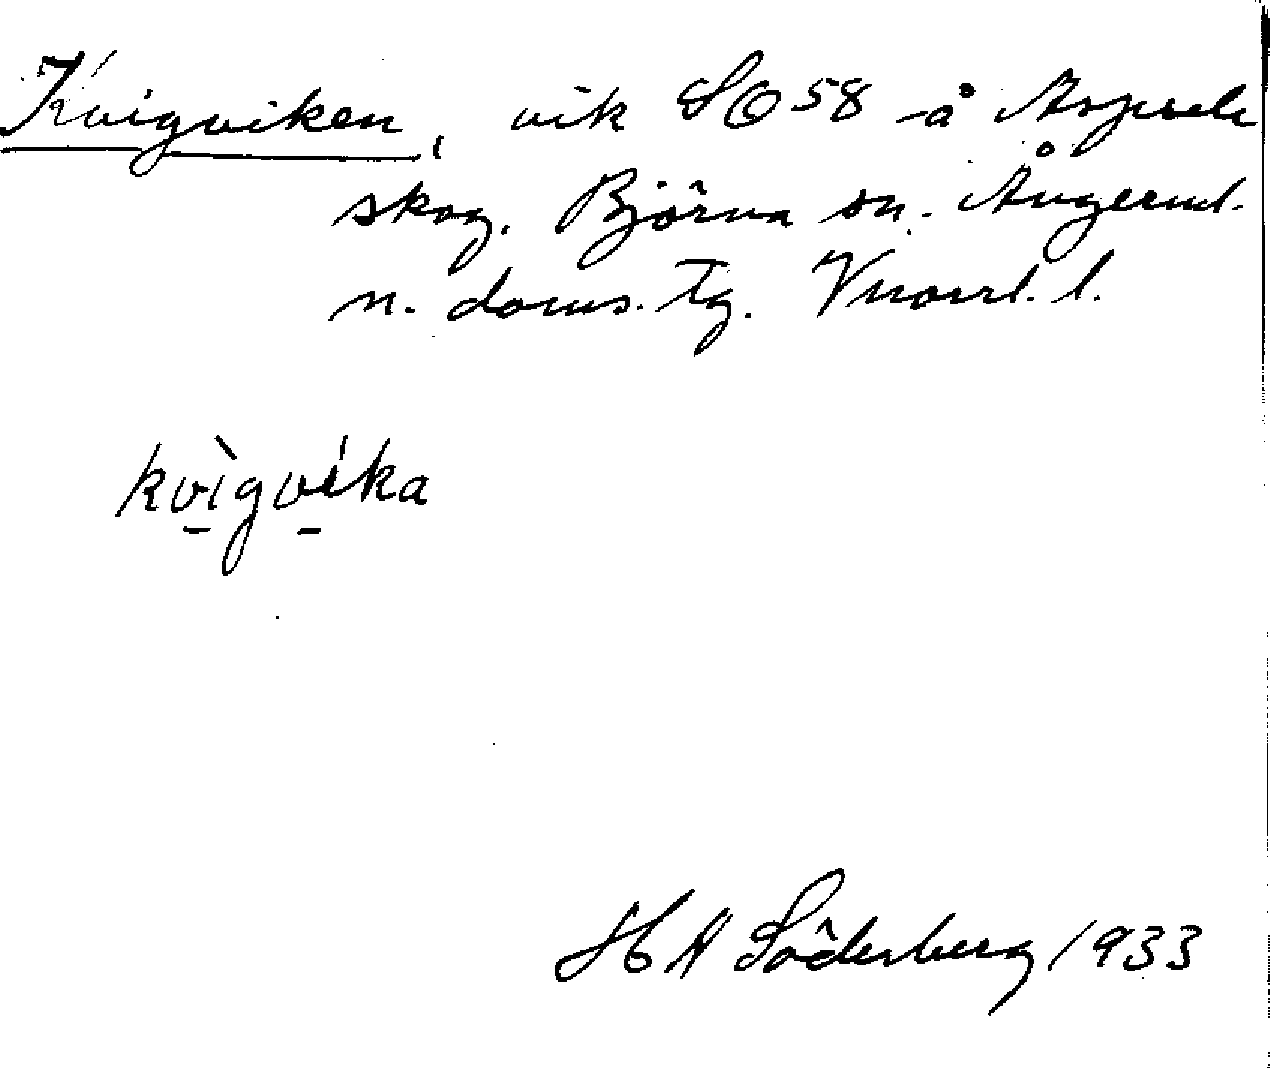 Kvigviken, vik SO 58 å Aspsele
skog. Björna sn. Ångerml.
n. doms. Tg. Vnorrl. l.
kvìgvíka
H A Söderberg 1933